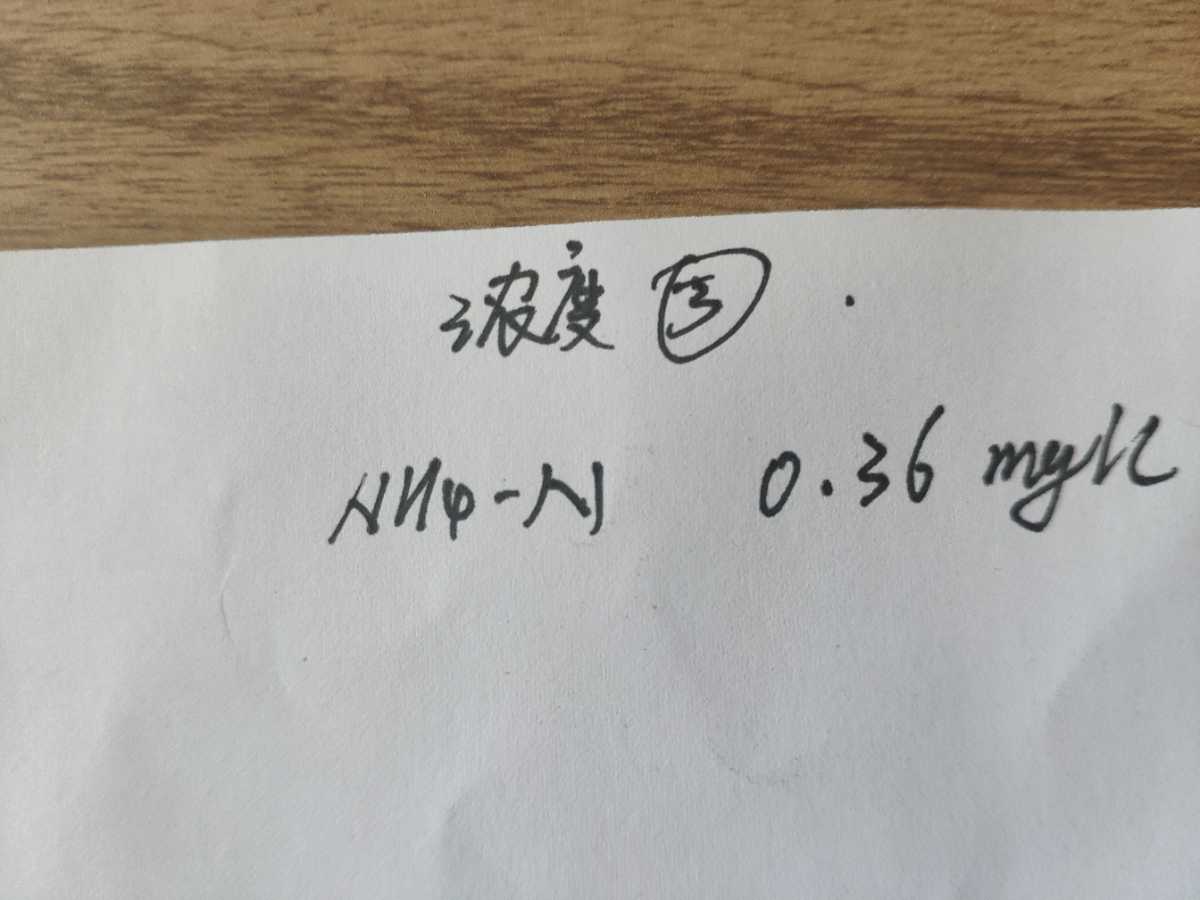 浓度 ⑤
NH4-N 0.36 mg/L